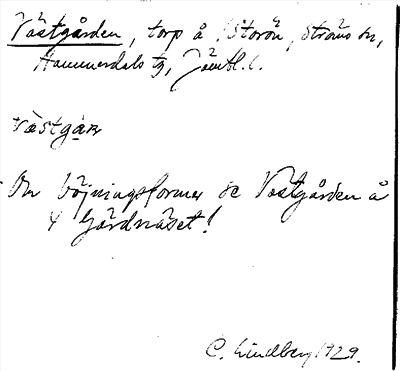 Västgården, torp å Storön, Ströms sn,
Hammerdals tg, Jämtl. l.
västgɑ̄ɳ
Om böjningsformer se Västgården å
4 Gärdnäset!
C. Lindberg 1929.